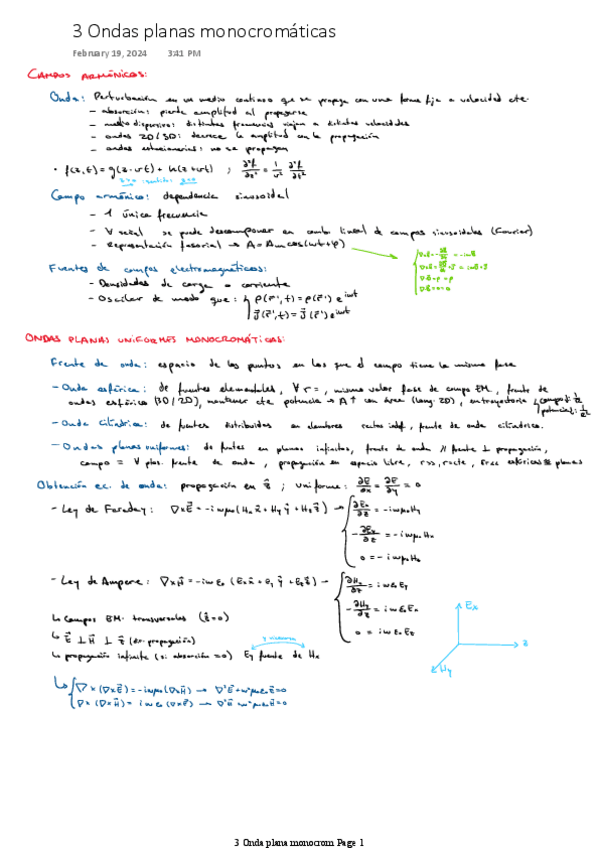 3 Ondas planas monocromáticas
February 19, 2024 3:41 PM
CAMPOS ARMÓNICOS:
Onda: Perturbación en un medio continuo que se propaga con una forma fija a velocidad cte.
- absorción: pierde amplitud al propagarse
- medio dispersivo: distintas frecuencias viajan a distintas velocidades
- ondas 2D/3D: decrece la amplitud con la propagación
- ondas estacionarias: no se propagan
• f(z,t) = g(z-vt) + h(z+vt) ; ∂²f/∂z² = 1/v² ∂²f/∂t²
Campo armónico: dependencia sinusoidal
- 1 única frecuencia
- ∀ señal se puede descomponer en comb lineal de campos sinusoidales (Fourier)
- Representación fasorial → A = Am cos(wt+φ)
Fuentes de campos electromagnéticos:
- Densidades de carga o corriente
- Oscilar de modo que: { ρ(r⃗,t) = ρ(r⃗) e^iwt
J⃗(r⃗,t) = J⃗(r⃗) e^iwt
ONDAS PLANAS UNIFORMES MONOCROMÁTICAS:
Frente de onda: espacio de los puntos en los que el campo tiene la misma fase
- Onda esférica: de fuentes elementales, ∀ r =, mismo valor fase de campo EM, frente de
ondas esférico (3D/2D), mantener cte potencia → A↑ con área (long. 2D), en trayectoria
- Onda cilíndrica: de fuentes distribuidas en alambres rectos indf, frente de onda cilíndrica.
- Ondas planas uniformes: de fuentes en planos infinitos, frente de onda // frente ⊥ propagación,
campo = ∀ ptos. frente de onda, propagación en espacio libre,
Obtención ec. de onda: propagación en ẑ ; uniforme: ∂E⃗/∂x = ∂E⃗/∂y = 0
- Ley de Faraday: ∇×E⃗ = -iwμ₀(Hx x̂ + Hy ŷ + Hz ẑ) → { ∂Ex/∂z = -iwμ₀Hy
-∂Ey/∂z = -iwμ₀Hx
0 = -iwμ₀Hz
- Ley de Ampere: ∇×H⃗ = -iwε₀ (Ex x̂ + Ey ŷ + Ez ẑ) → { ∂Hx/∂z = iwε₀Ey
-∂Hy/∂z = iwε₀Ex
0 = iwε₀Ez
↳ Campos EM: transversales (ẑ=0)
↳ E⃗ ⊥ H⃗ ⊥ ẑ (ex. propagación)
↳ propagación infinita (si absorción = 0) Ey fuente de Hx
y viceversa
Ex
z
Hy
↳ { ∇×(∇×E⃗) = -iwμ₀(∇×H⃗) → ∇²E⃗ + w²μ₀ε₀E⃗ = 0
∇×(∇×H⃗) = iwε₀(∇×E⃗) → ∇²H⃗ + w²μ₀ε₀H⃗ = 0
3 Onda plana monocrom Page 1